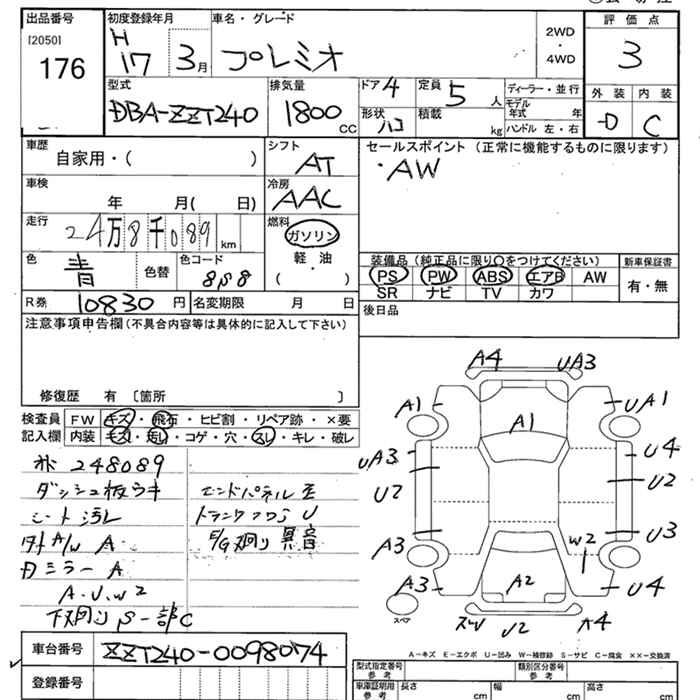 出品番号 [2050] 176
初度登録年月 H 17 3月
車名・グレード プレミオ
2WD・4WD
評価点 3
型式 DBA-ZZT240
排気量 1800 CC
ドア 4 定員 5 人
形状 ハコ 積載 kg
ディーラー・並行
モデル年式 年
ハンドル 左・右
外装 D 内装 C
車歴 自家用・( )
シフト AT
セールスポイント (正常に機能するものに限ります)
・AW
車検 年 月( 日)
冷房 AAC
走行 24万8千089 km
燃料 ガソリン・軽油・( )
色 青 色替 色コード 8S8
装備品 (純正品に限り〇をつけてください) 新車保証書
PS PW ABS エアB AW 有・無
SR ナビ TV カワ
R券 10830 円 名変期限 月 日
後日品
注意事項申告欄 (不具合内容等は具体的に記入して下さい)
修復歴 有 〔箇所 〕
検査員 FW キズ・飛石・ヒビ割・リペア跡・×要
記入欄 内装 キズ・汚レ・コゲ・穴・スレ・キレ・破レ
248089
ダッシュ板ウキ
シート汚レ
A/W A
ミラー A
A・U・W2
下廻りS 一部C
エンドパネル歪
トランクフロアU
E/G廻り異音
A4 UA3
A1 A1 UA1
UA3 U4
U2 U2
A3 W2 U3
A3 A2 U4
スペア U2 A4
A-キズ E-エクボ U-凹み W-補修跡 S-サビ C-腐食 XX-交換済
車台番号 ZZT240-0098074
登録番号
型式指定番号 参考 類別区分番号 参考
車庫証明用 参考 長さ cm 幅 cm 高さ cm